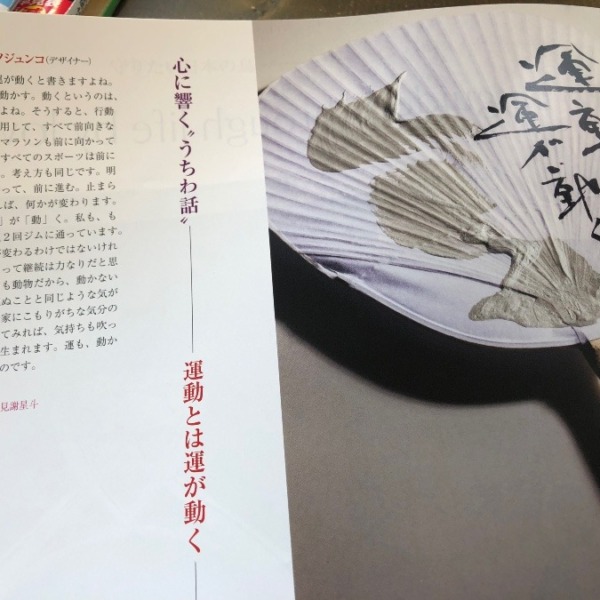 心に響く“うちわ話”
運動とは運が動く
ジュンコ(デザイナー)
が動くと書きますよね。
動かす。動くというのは、
よね。そうすると、行動
用して、すべて前向きな
マラソンも前に向かって
すべてのスポーツは前に
。考え方も同じです。明
って、前に進む。止まら
れば、何かが変わります。
」が「動」く。私も、も
2回ジムに通っています。
が変わるわけではないけれ
って継続は力なりだと思
も動物だから、動かない
ぬことと同じような気が
家にこもりがちな気分の
てみれば、気持ちも吹っ
生まれます。運も、動か
のです。
見謝星斗
運動
運が動く